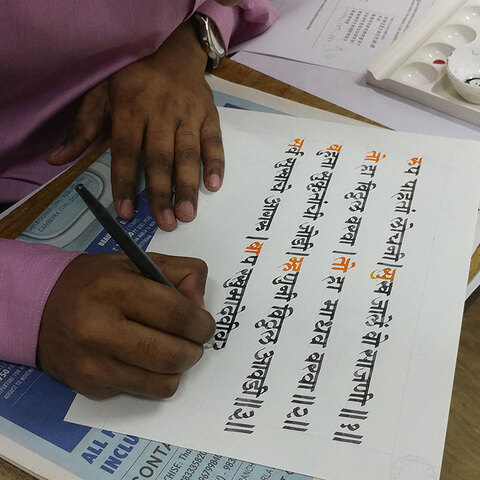 रूप पाहतां लोचनीं। सुख जालें वो साजणी॥१॥
तो हा विठ्ठल बरवा। तो हा माधव बरवा॥२॥
बहुता सुकृतांची जोडी। म्हणुनी विठ्ठल आवडी॥३॥
सर्व सुखाचे आगर। बाप रखुमादेवीव
ALL
INCLU
CONTA